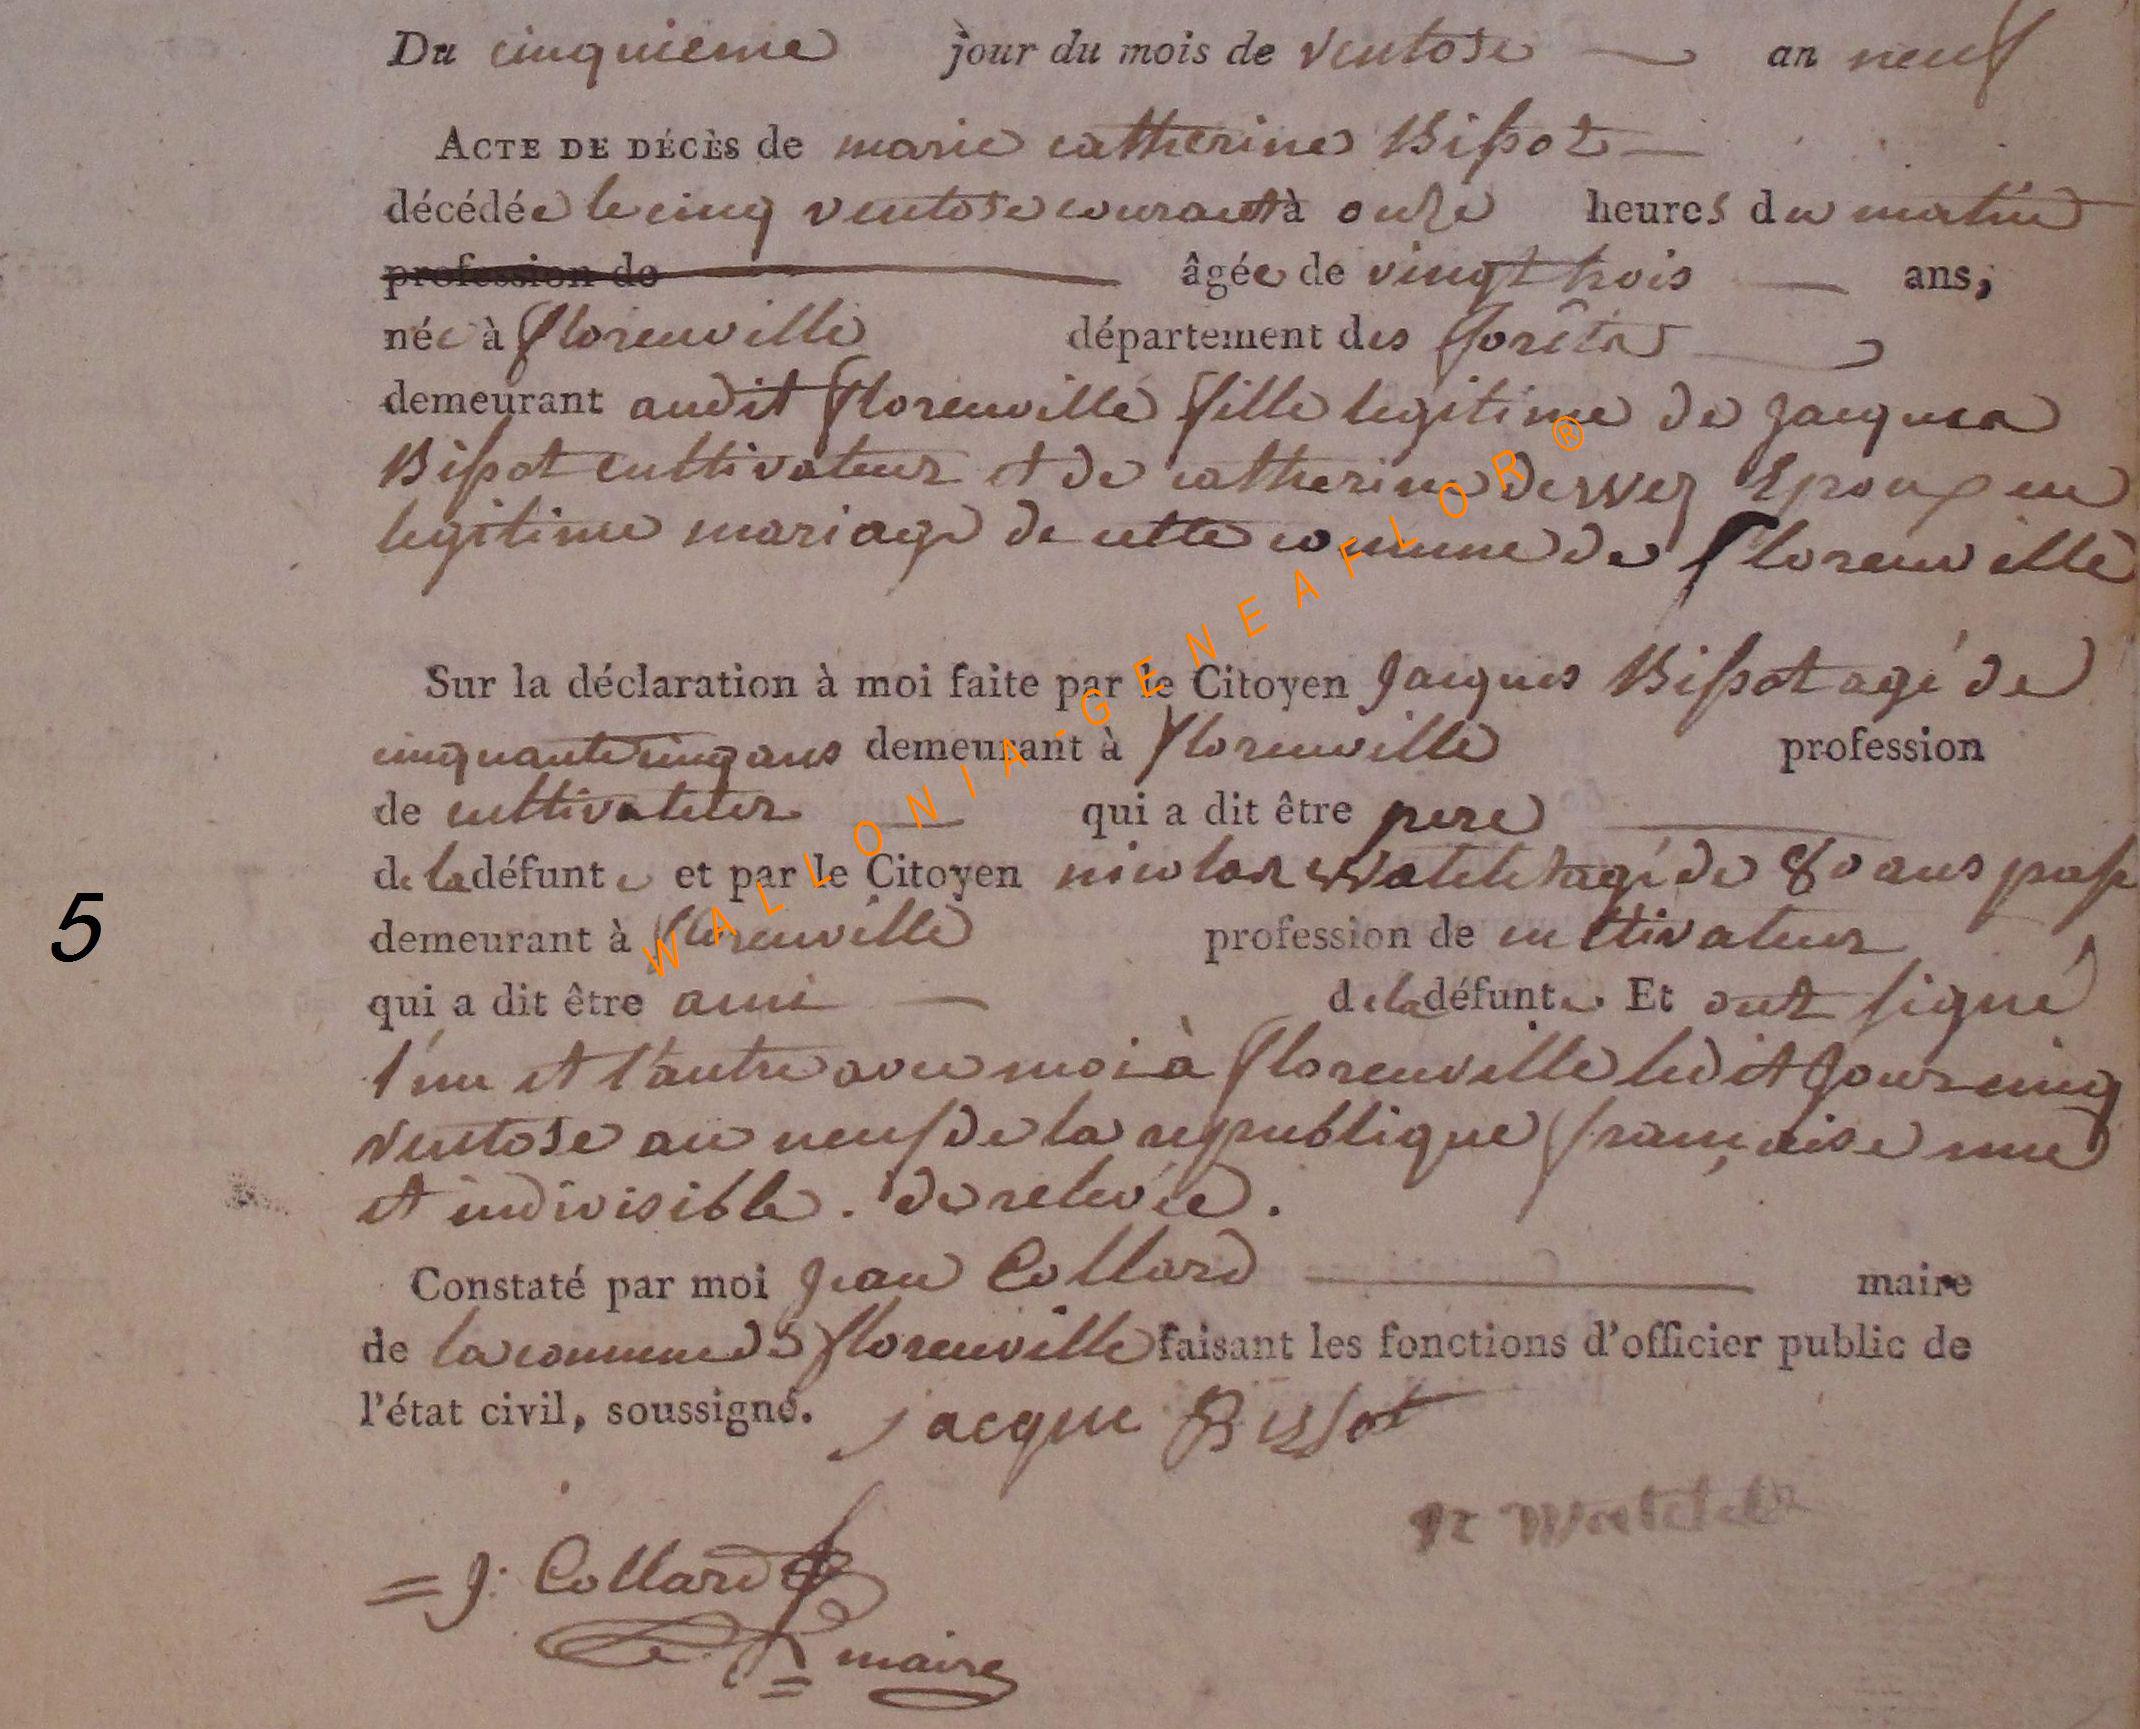 Du cinquieme jour du mois de ventose an neuf
ACTE DE DÉCÈS de marie catherine Bissot
décédée le cinq ventose courant à onze heures du matin
profession de âgée de vingt trois ans,
née à florenville département des forêts
demeurant audit florenville fille legitime de jacques
Bissot cultivateur et de catherine Epoux en
legitime mariage de cette commune de florenville
Sur la déclaration à moi faite par le Citoyen jacques Bissot agé de
cinquante cinq ans demeurant à florenville profession
de cultivateur qui a dit être pere
de la défunte et par le Citoyen nicolas Watelet agé de 80 ans
demeurant à florenville profession de cultivateur
5
qui a dit être ami de la défunte. Et ont signé
l'un et l'autre avec moi à florenville ledit jour cinq
ventose an neuf de la republique française une
et indivisible. de relevée.
Constaté par moi jean Collard maire
de la commune de florenville faisant les fonctions d'officier public de
l'état civil, soussigné. jacque Bissot
= J: Collard
maire
WALLONIA-GENEAFLOR®